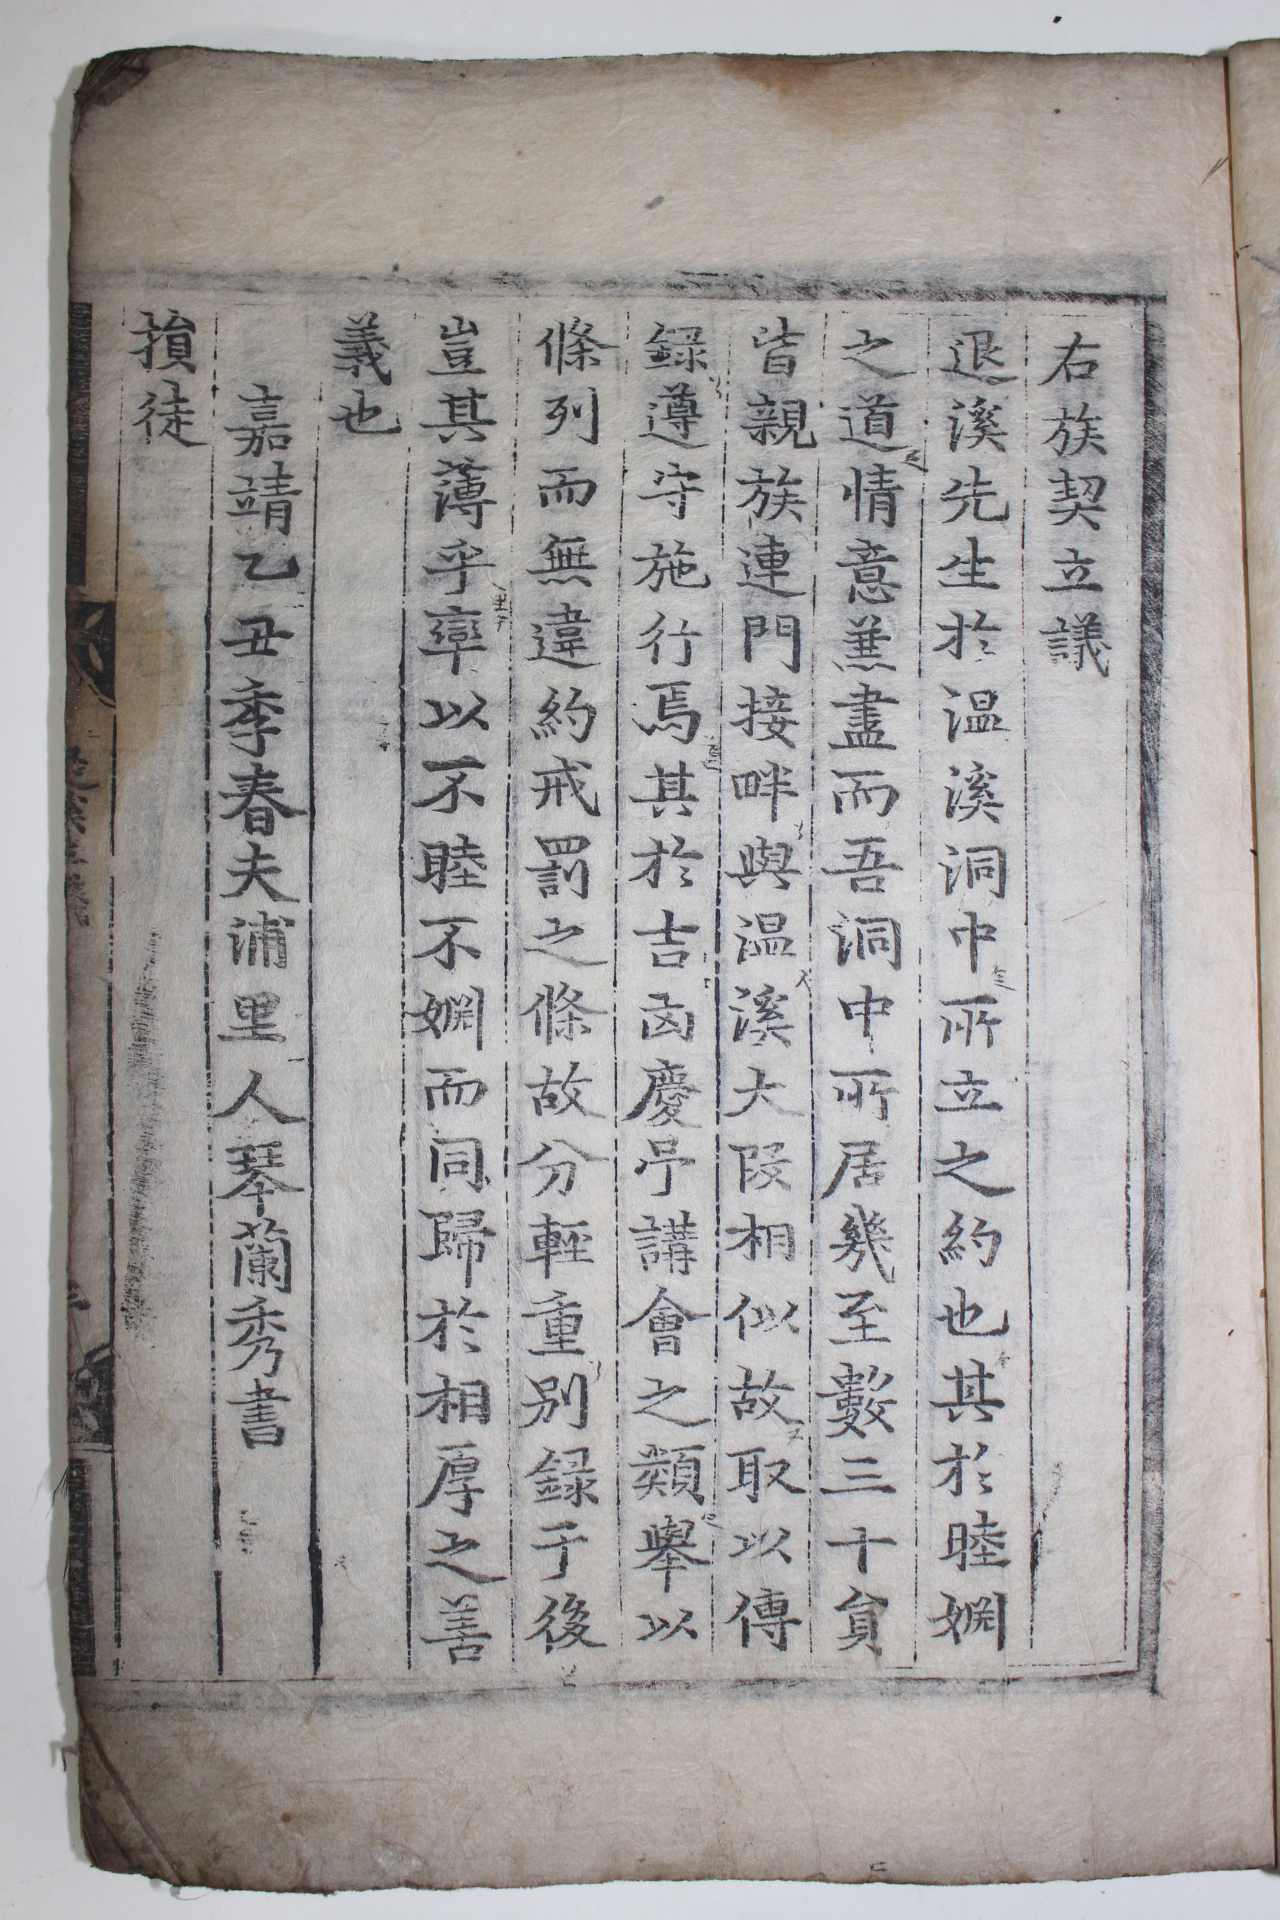 右族契立議
退溪先生於温溪洞中所立之約也其於睦婣
之道情意兼盡而吾洞中所居幾至數三十貟
皆親族連門接畔與温溪大段相似故取以傳
録遵守施行焉其於吉凶慶吊講會之類舉以
條列而無違約戒罰之條故分輕重別録于後
豈其薄乎率以不睦不婣而同歸於相厚之善
義也
嘉靖乙丑季春夫浦里人琴蘭秀書
損徒